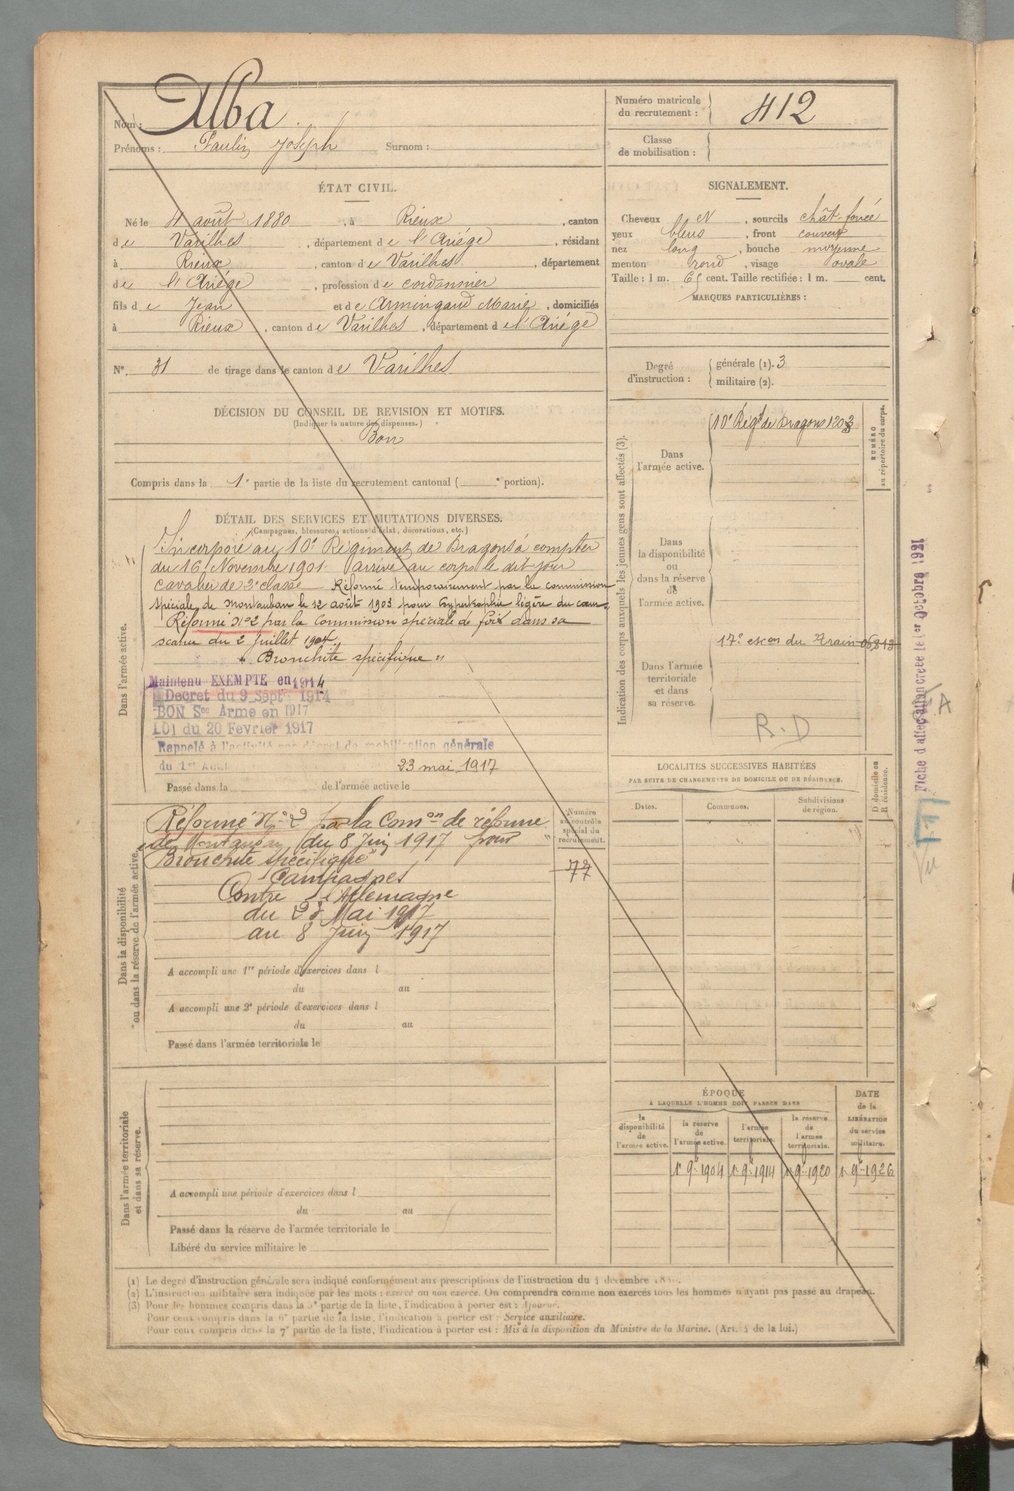 Nom : Alba
Prénoms : Paulin Joseph Surnom :
Numéro matricule
du recrutement : 412
Classe
de mobilisation :
ÉTAT CIVIL.
Né le 4 août 1880, à Rieux, canton
de Varilhes, département de l'Ariège, résidant
à Rieux, canton de Varilhes, département
de l'Ariège, profession de cordonnier
fils de Jean et de Armingaud Marie, domiciliés
à Rieux, canton de Varilhes, département de l'Ariège
N° 31 de tirage dans le canton de Varilhes
SIGNALEMENT.
Cheveux, sourcils chât foncé
yeux bleus, front couvert
nez long, bouche moyenne
menton rond, visage ovale
Taille : 1 m. 65 cent. Taille rectifiée : 1 m. cent.
MARQUES PARTICULIÈRES :
Degré
d'instruction :
générale (1). 3
militaire (2).
DÉCISION DU CONSEIL DE REVISION ET MOTIFS.
(Indiquer la nature des dispenses.)
Bon
Compris dans la 1e partie de la liste du recrutement cantonal ( e portion).
DÉTAIL DES SERVICES ET MUTATIONS DIVERSES.
(Campagnes, blessures, actions d'éclat, décorations, etc.)
Dans l'armée active.
Incorporé au 10e Régiment de Dragons à compter
du 16 Novembre 1901. arrivé au corps le dit jour
cavalier de 2e classe Réformé temporairement par la commission
spéciale de Montauban le 12 août 1903 pour hypertrophie légère du cœur
Réformé N°2 par la Commission spéciale de foix dans sa
séance du 2 Juillet 1904
" Bronchite spécifique "
Maintenu EXEMPTE en 1914
Décret du 9 Sept. 1914
BON Sce Arme en 1917
LOI du 20 Février 1917
Rappelé à l'activité par décret de mobilisation générale
du 1er Août 23 mai 1917
Passé dans la de l'armée active le
Indication des corps auxquels les jeunes gens sont affectés (3).
Dans
l'armée active.
10e Régt de Dragons 1203
NUMÉRO
au répertoire du corps.
Dans
la disponibilité
ou
dans la réserve
de
l'armée active.
17e escon du Train
Dans l'armée
territoriale
et dans
sa réserve.
R.D
Fiche d'affectation créée le 1er Octobre 1921
Vu
Dans la disponibilité
ou dans la réserve de l'armée active.
Numéro
au contrôle
spécial du
recrutement.
77
Réformé N° 2 par la Comon de réforme
de Montauban du 8 Juin 1917 pour
"Bronchite spécifique"
Campagnes
Contre l'Allemagne
du 23 Mai 1917
au 8 Juin 1917
A accompli une 1re période d'exercices dans l
du au
A accompli une 2e période d'exercices dans l
du au
Passé dans l'armée territoriale le
LOCALITÉS SUCCESSIVES HABITÉES
PAR SUITE DE CHANGEMENTS DE DOMICILE OU DE RÉSIDENCE.
Dates.
Communes.
Subdivisions
de région.
D domicile ou
R résidence.
Dans l'armée territoriale
et dans sa réserve.
A accompli une période d'exercices dans l
du au
Passé dans la réserve de l'armée territoriale le
Libéré du service militaire le
ÉPOQUE
A LAQUELLE L'HOMME DOIT PASSER DANS
la
disponibilité
de
l'armée active.
la réserve
de
l'armée active.
l'armée
territoriale.
la réserve
de
l'armée
territoriale.
DATE
de la
LIBÉRATION
du service
militaire.
1 9e 1904 1 9e 1914 1 9e 1920 1 9e 1926
(1) Le degré d'instruction générale sera indiqué conformément aux prescriptions de l'instruction du 4 décembre
(2) L'instruction militaire sera indiquée par les mots : exercé ou non exercé. On comprendra comme non exercés tous les hommes n'ayant pas passé au drapeau.
(3) Pour les hommes compris dans la 5e partie de la liste, l'indication à porter est : Ajourné.
Pour ceux compris dans la 6e partie de la liste, l'indication à porter est : Service auxiliaire.
Pour ceux compris dans la 7e partie de la liste, l'indication à porter est : Mis à la disposition du Ministre de la Marine. (Art. 4 de la loi.)